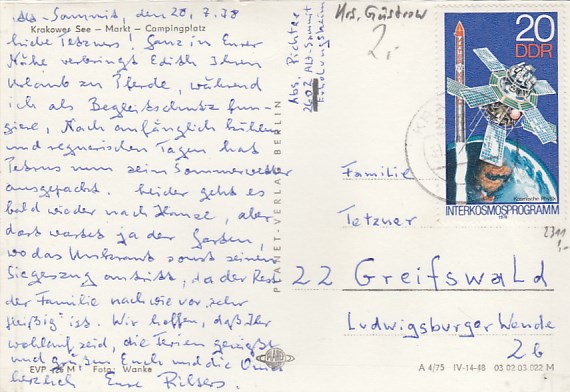 Alt-Sammit, den 20.7.78
Krakower See – Markt – Campingplatz
Liebe Tetzners! Ganz in Eurer
Nähe verbringt Edith ihren
Urlaub zu Pferde, während
ich als Begleitschutz fun-
giere. Nach anfänglich kühlen
und regnerischen Tagen hat
Petrus nun sein Sommerwetter
ausgepackt. Leider geht es
bald wieder nach Hause, aber
dort wartet ja der Garten,
wo das Unkraut sonst seinen
Siegeszug antritt, da der Rest
der Familie nach wie vor "sehr
fleißig" ist. Wir hoffen, daß Ihr
wohlauf seid, die Ferien genießt
und grüßen Euch und die Oma
herzlich Eure
EVP M Foto: Wanke
PLANET-VERLAG BERLIN
PLANET
Abs. Richter
2602 Alt-Sammit
Krs. Güstrow
2,-
20
DDR
Kosmische Physik
INTERKOSMOSPROGRAMM
1978
Familie
Tetzner
22 Greifswald
Ludwigsburger Wende
2b
A 4/75 IV-14-48 03 02 03 022 M